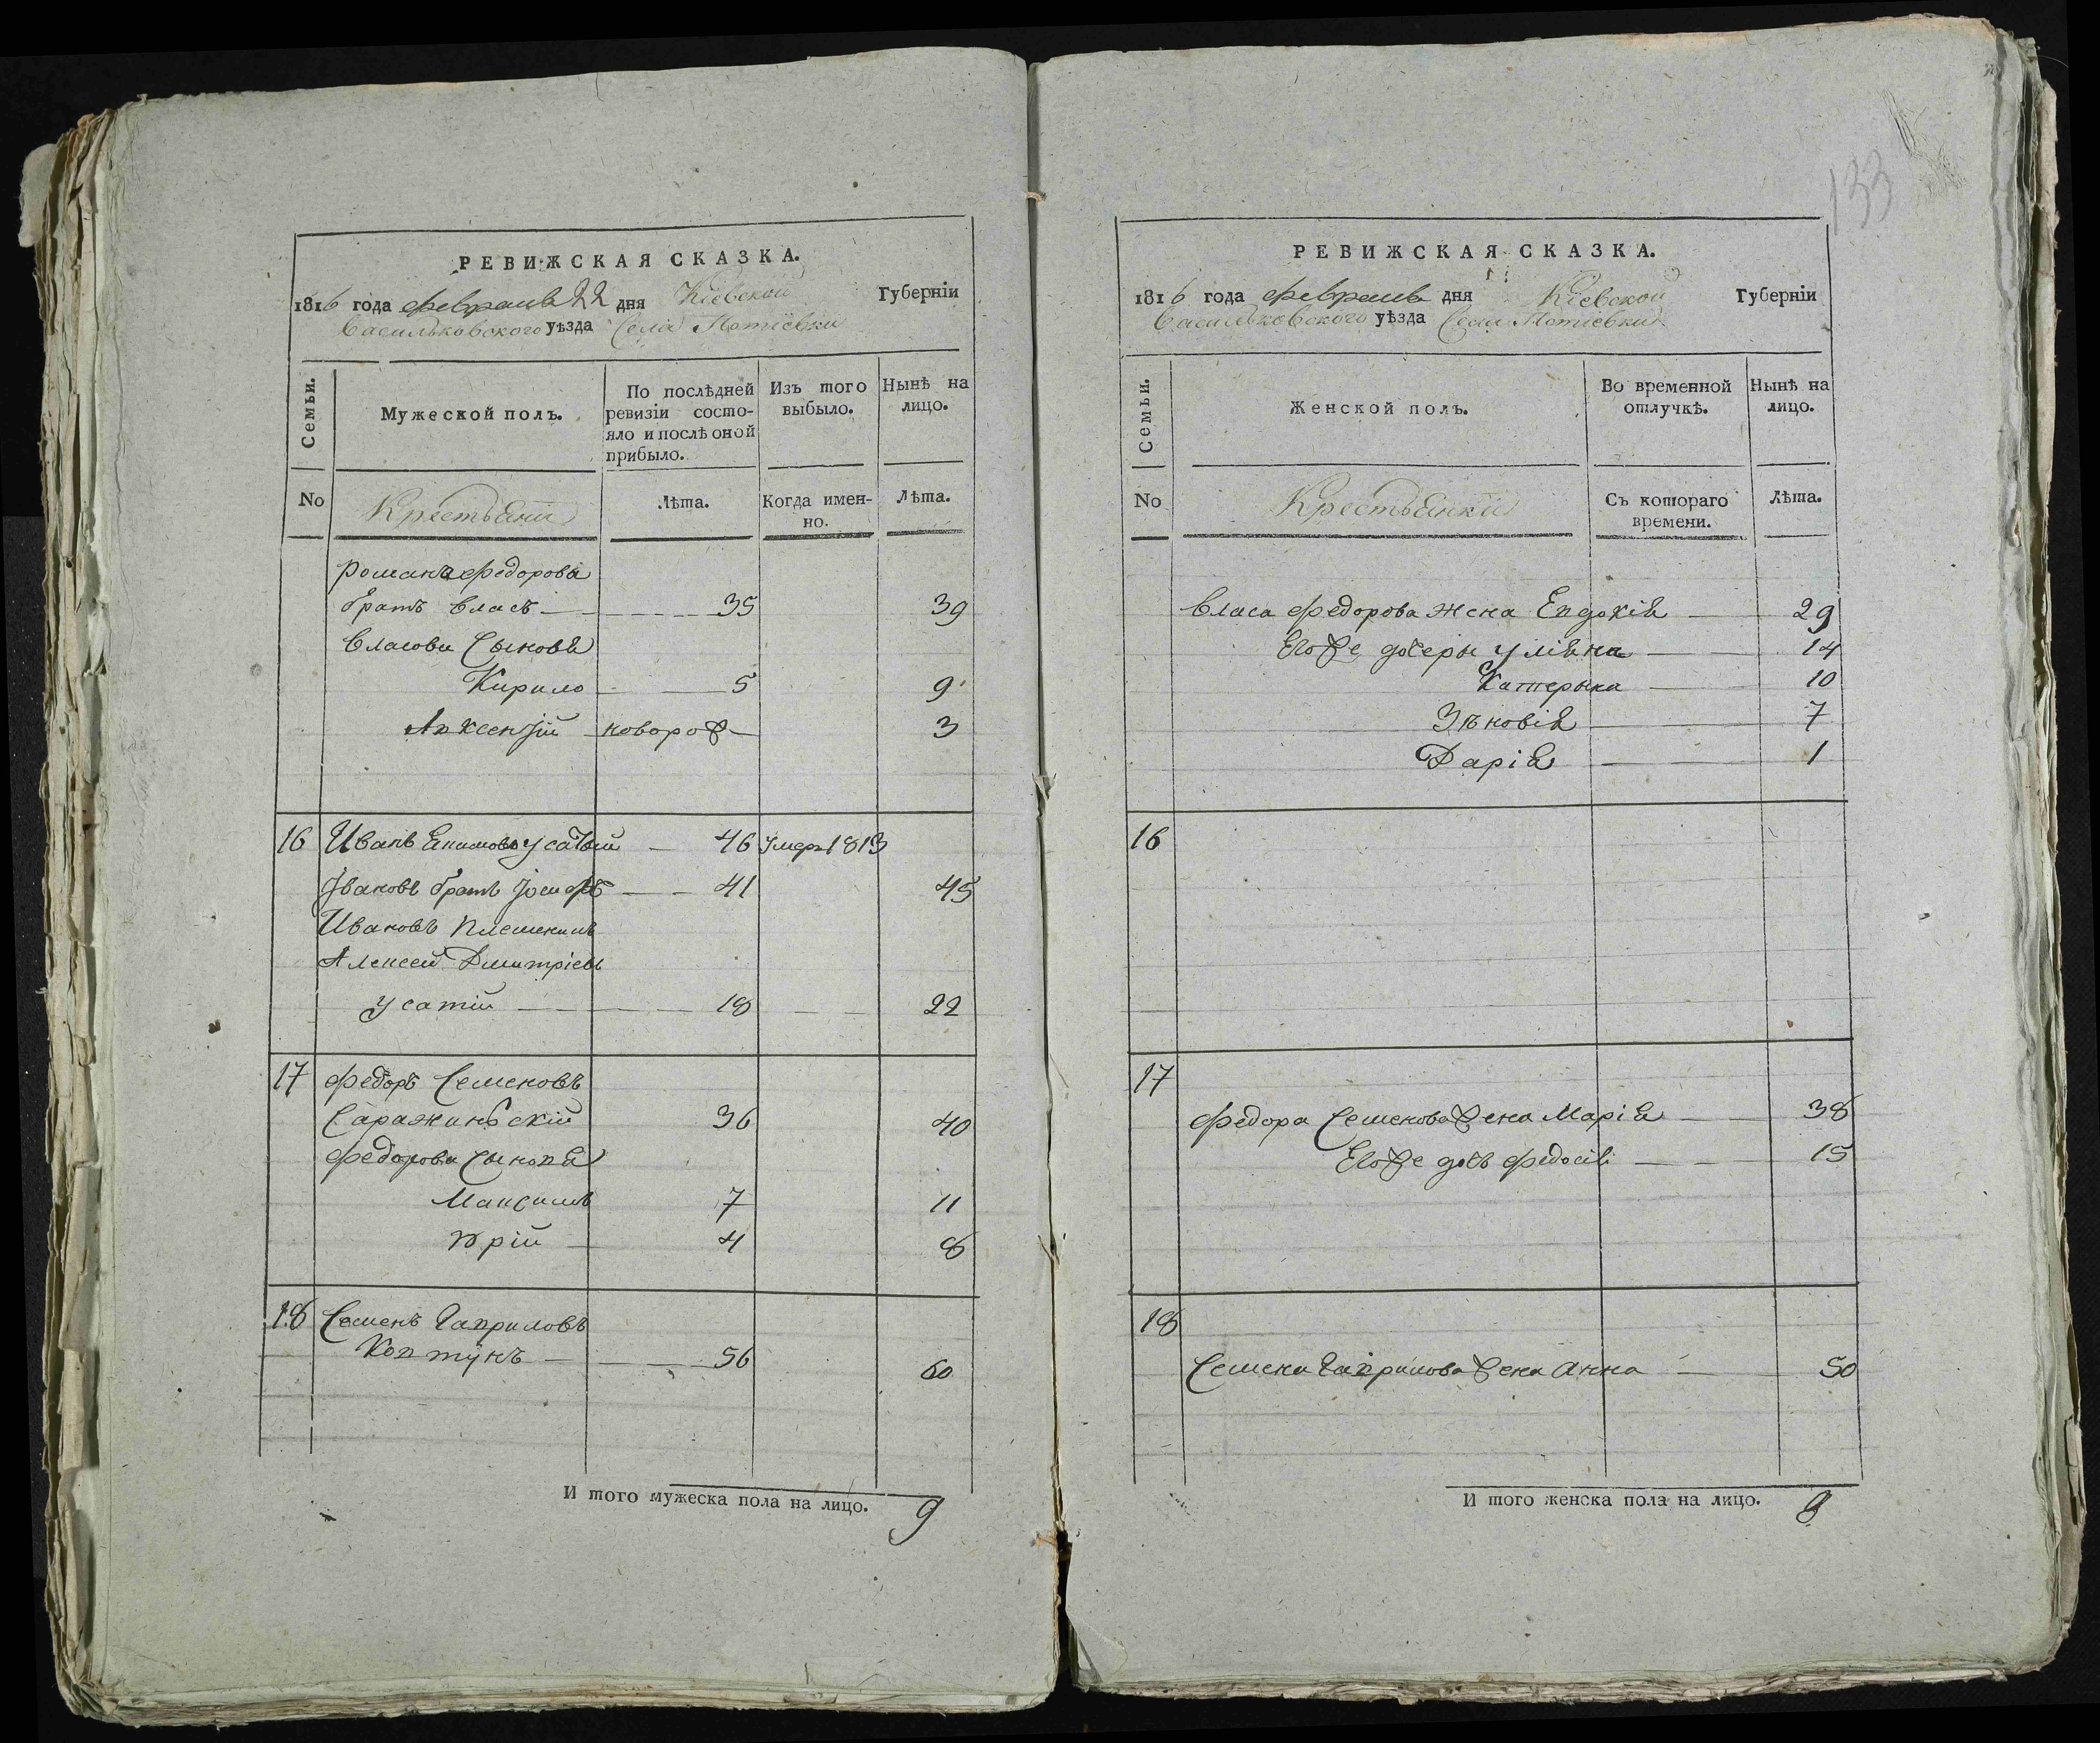 133
РЕВИЖСКАЯ СКАЗКА.
1816 года февраля 22 дня Кіевской Губерніи
Васильковского уѣзда Села Потіевки
Семьи.
Мужеской полъ.
По послѣдней ревизіи состояло и послѣ оной прибыло.
Изъ того выбыло.
Нынѣ на лицо.
No
Крестьяни
Лѣта.
Когда именно.
Лѣта.
Романа Федорова
братъ Власъ 35 39
Власови Сыновя
Кирило 5 9
Авксентій новорож 3
16 Иванъ Екимовъ Усатый 46 умеръ 1813
Івановъ братъ Іосифъ 41 45
Ивановъ племеникъ
Алексей Дмитріевъ
Усатій 18 22
17 Федоръ Семеновъ
Саражинскій 36 40
Федорови Сыновя
Максимъ 7 11
Юрій 4 8
18 Семенъ Гавриловъ
Ковтунъ 56 60
И того мужеска пола на лицо. 9
РЕВИЖСКАЯ СКАЗКА.
1816 года февраля дня Кіевской Губерніи
Васильковского уѣзда Села Потіевки
Семьи.
Женской полъ.
Во временной отлучкѣ.
Нынѣ на лицо.
No
Крестьянки
Съ котораго времени.
Лѣта.
Власа Федорова жена Евдокія 29
Егоже дочеры Уліяна 14
Катерына 10
Зѣновія 7
Дарія 1
16
17
Федора Семенова жена Марія 38
Егоже дочь Федосія 15
18
Семена Гаврилова жена Анна 50
И того женска пола на лицо. 8